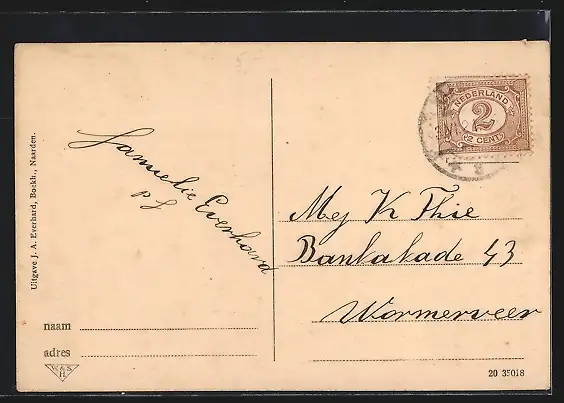 Uitgave J. A. Everhard, Boekh., Naarden.
Everhard
NEDERLAND
2
2 CENT
Mej K Thie
Bankakade 43
Wormerveer
naam
adres
20 35018